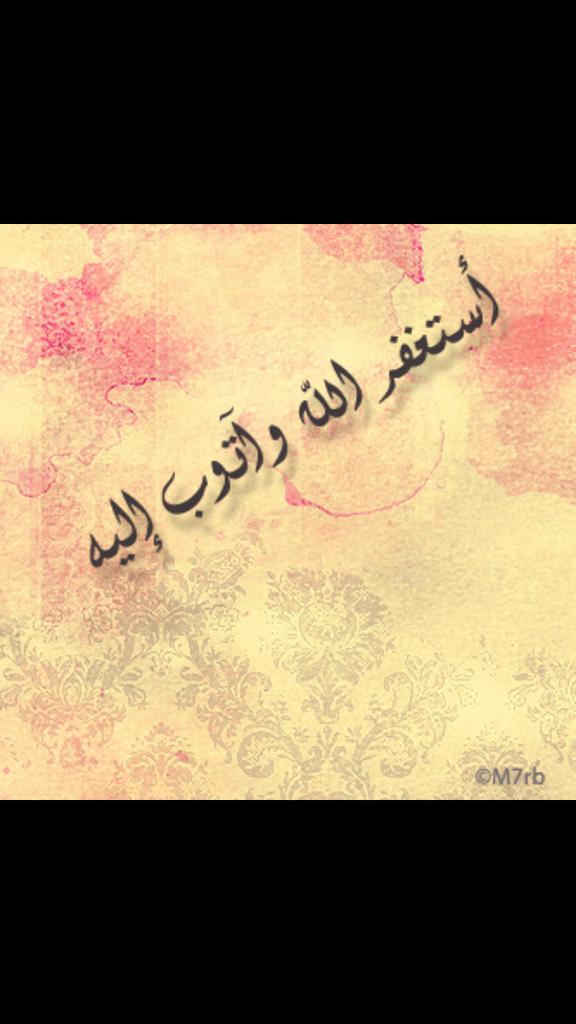 أستغفر الله وآتوب إليه
©M7rb